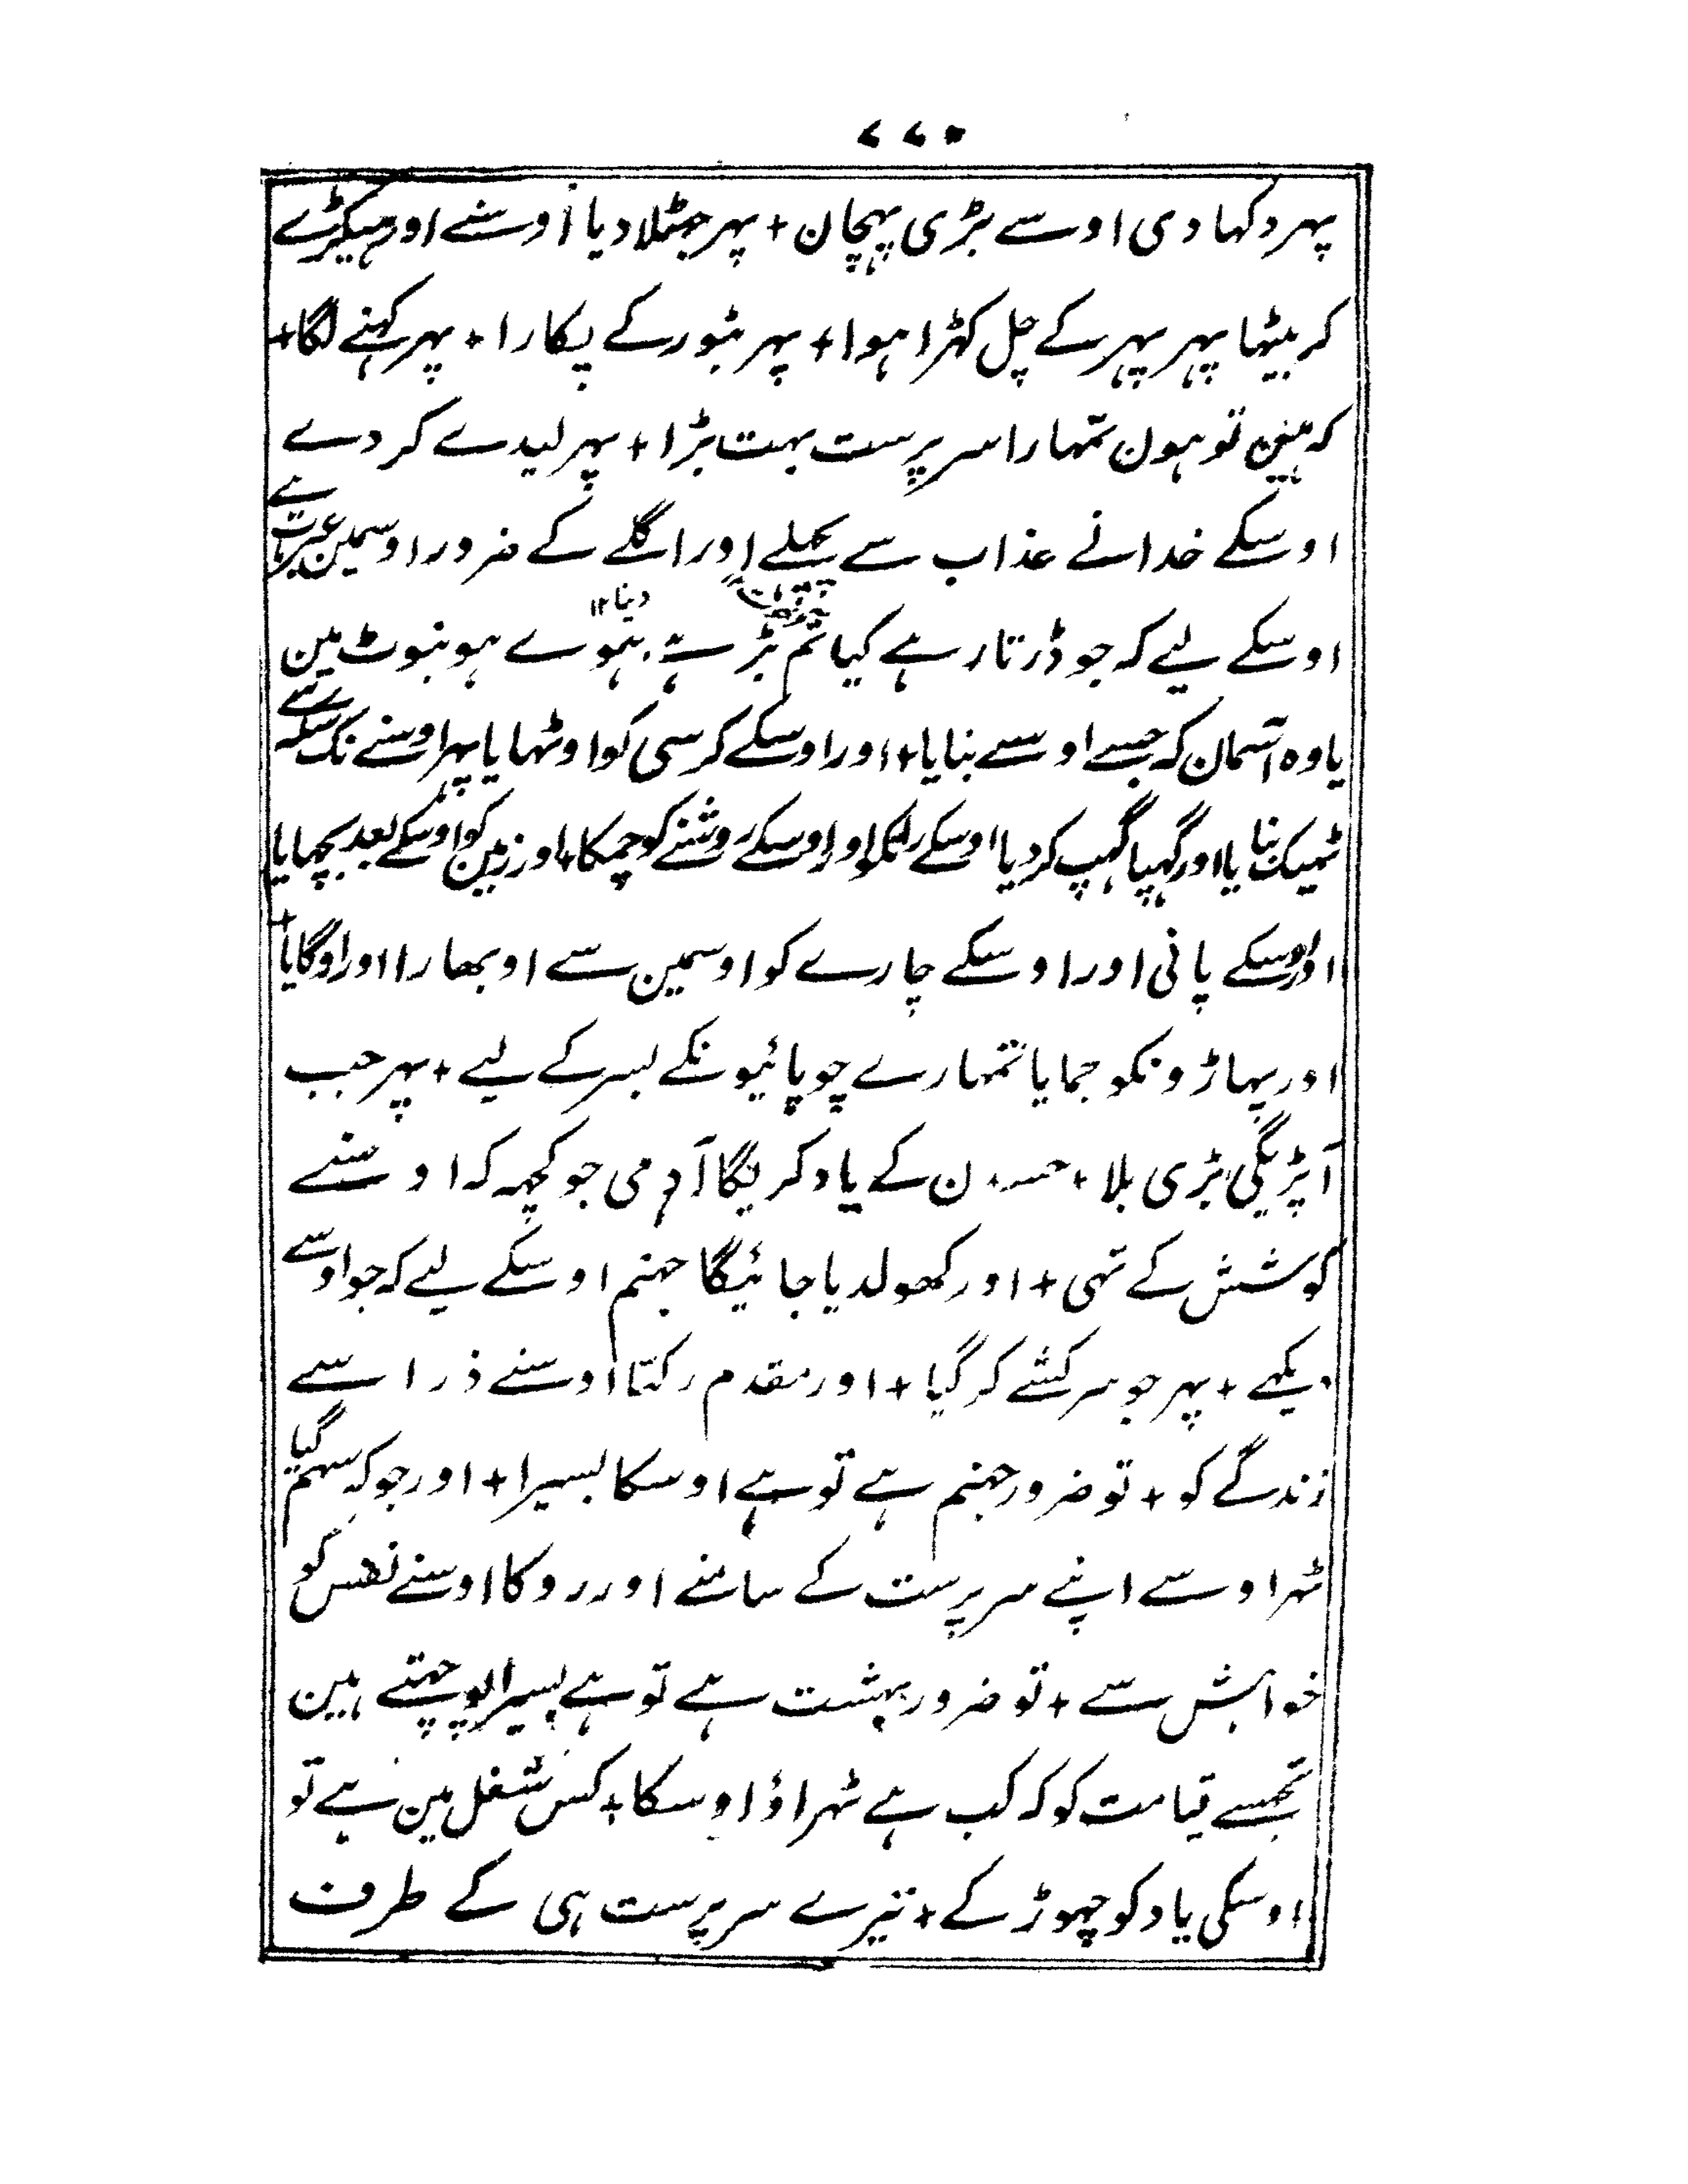 ۷۷۰
پہر دکہا دی اوسے بڑی پہچان + پہر جہٹلا دیا اوسنے اور ہیکڑے
کر بیٹہا پہر پہر کے چل کہڑا ہوا + پہر بٹور کے پکارا + پہر کہنے لگا +
کہ مینہ تو ہون تمہارا سرپرست بہت بڑا + پہر لیدے کر دے
اوسکے خدا نے عذاب سے پچہلے اور اگلے کے ضرور اوسمین عبرت ہے
دینا ۱۲
اوسکے لیے کہ جو ڈرتا رہے کیا تم بڑہے ہوے ہو بنوٹ مین
یا وہ آسمان کہ جسے اوسے بنایا + اور اوسکے کرسی کو اوٹہایا پہر اوسنے نک سکہ سے
ٹہیک بنایا اور گہپا گہپ کر دیا اوسکے رات کو اور اوسکے روشنے کو چمکایا اور زمین کو اوسکے بعد بچہایا +
اور اوسکے پانی اور اوسکے چارے کو اوسمین سے اوبھارا اور اوگایا
اور پہاڑونکو جمایا تمہارے چوپائیونکے بسر کے لیے + پہر جب
آپڑیگی بڑی بلا + جسدن کے یاد کریگا آدمی جو کچہہ کہ اوسنے
کوشش کے تہی + اور کھولدیا جائیگا جہنم اوسکے لیے کہ جو اوسے
دیکہے + پہر جو سرکشے کر گیا + اور مقدم رکہا اوسنے ذرا سے
زندگے کو + تو ضرور جہنم ہے تو ہے اوسکا بسیرا + اور جو کہ سہم گیا
ٹہراو سے اپنے سرپرست کے سامنے اور روکا اوسنے نفس کو
خواہش سے + تو ضرور بہشت ہے تو ہے بسیرا پوچہتے ہین
تجھسے قیامت کو کہ کب ہے ٹہراؤ اوسکا + کس شغل مین ہے تو
اوسکی یاد کو چہوڑ کے + تیرے سرپرست ہی کے طرف